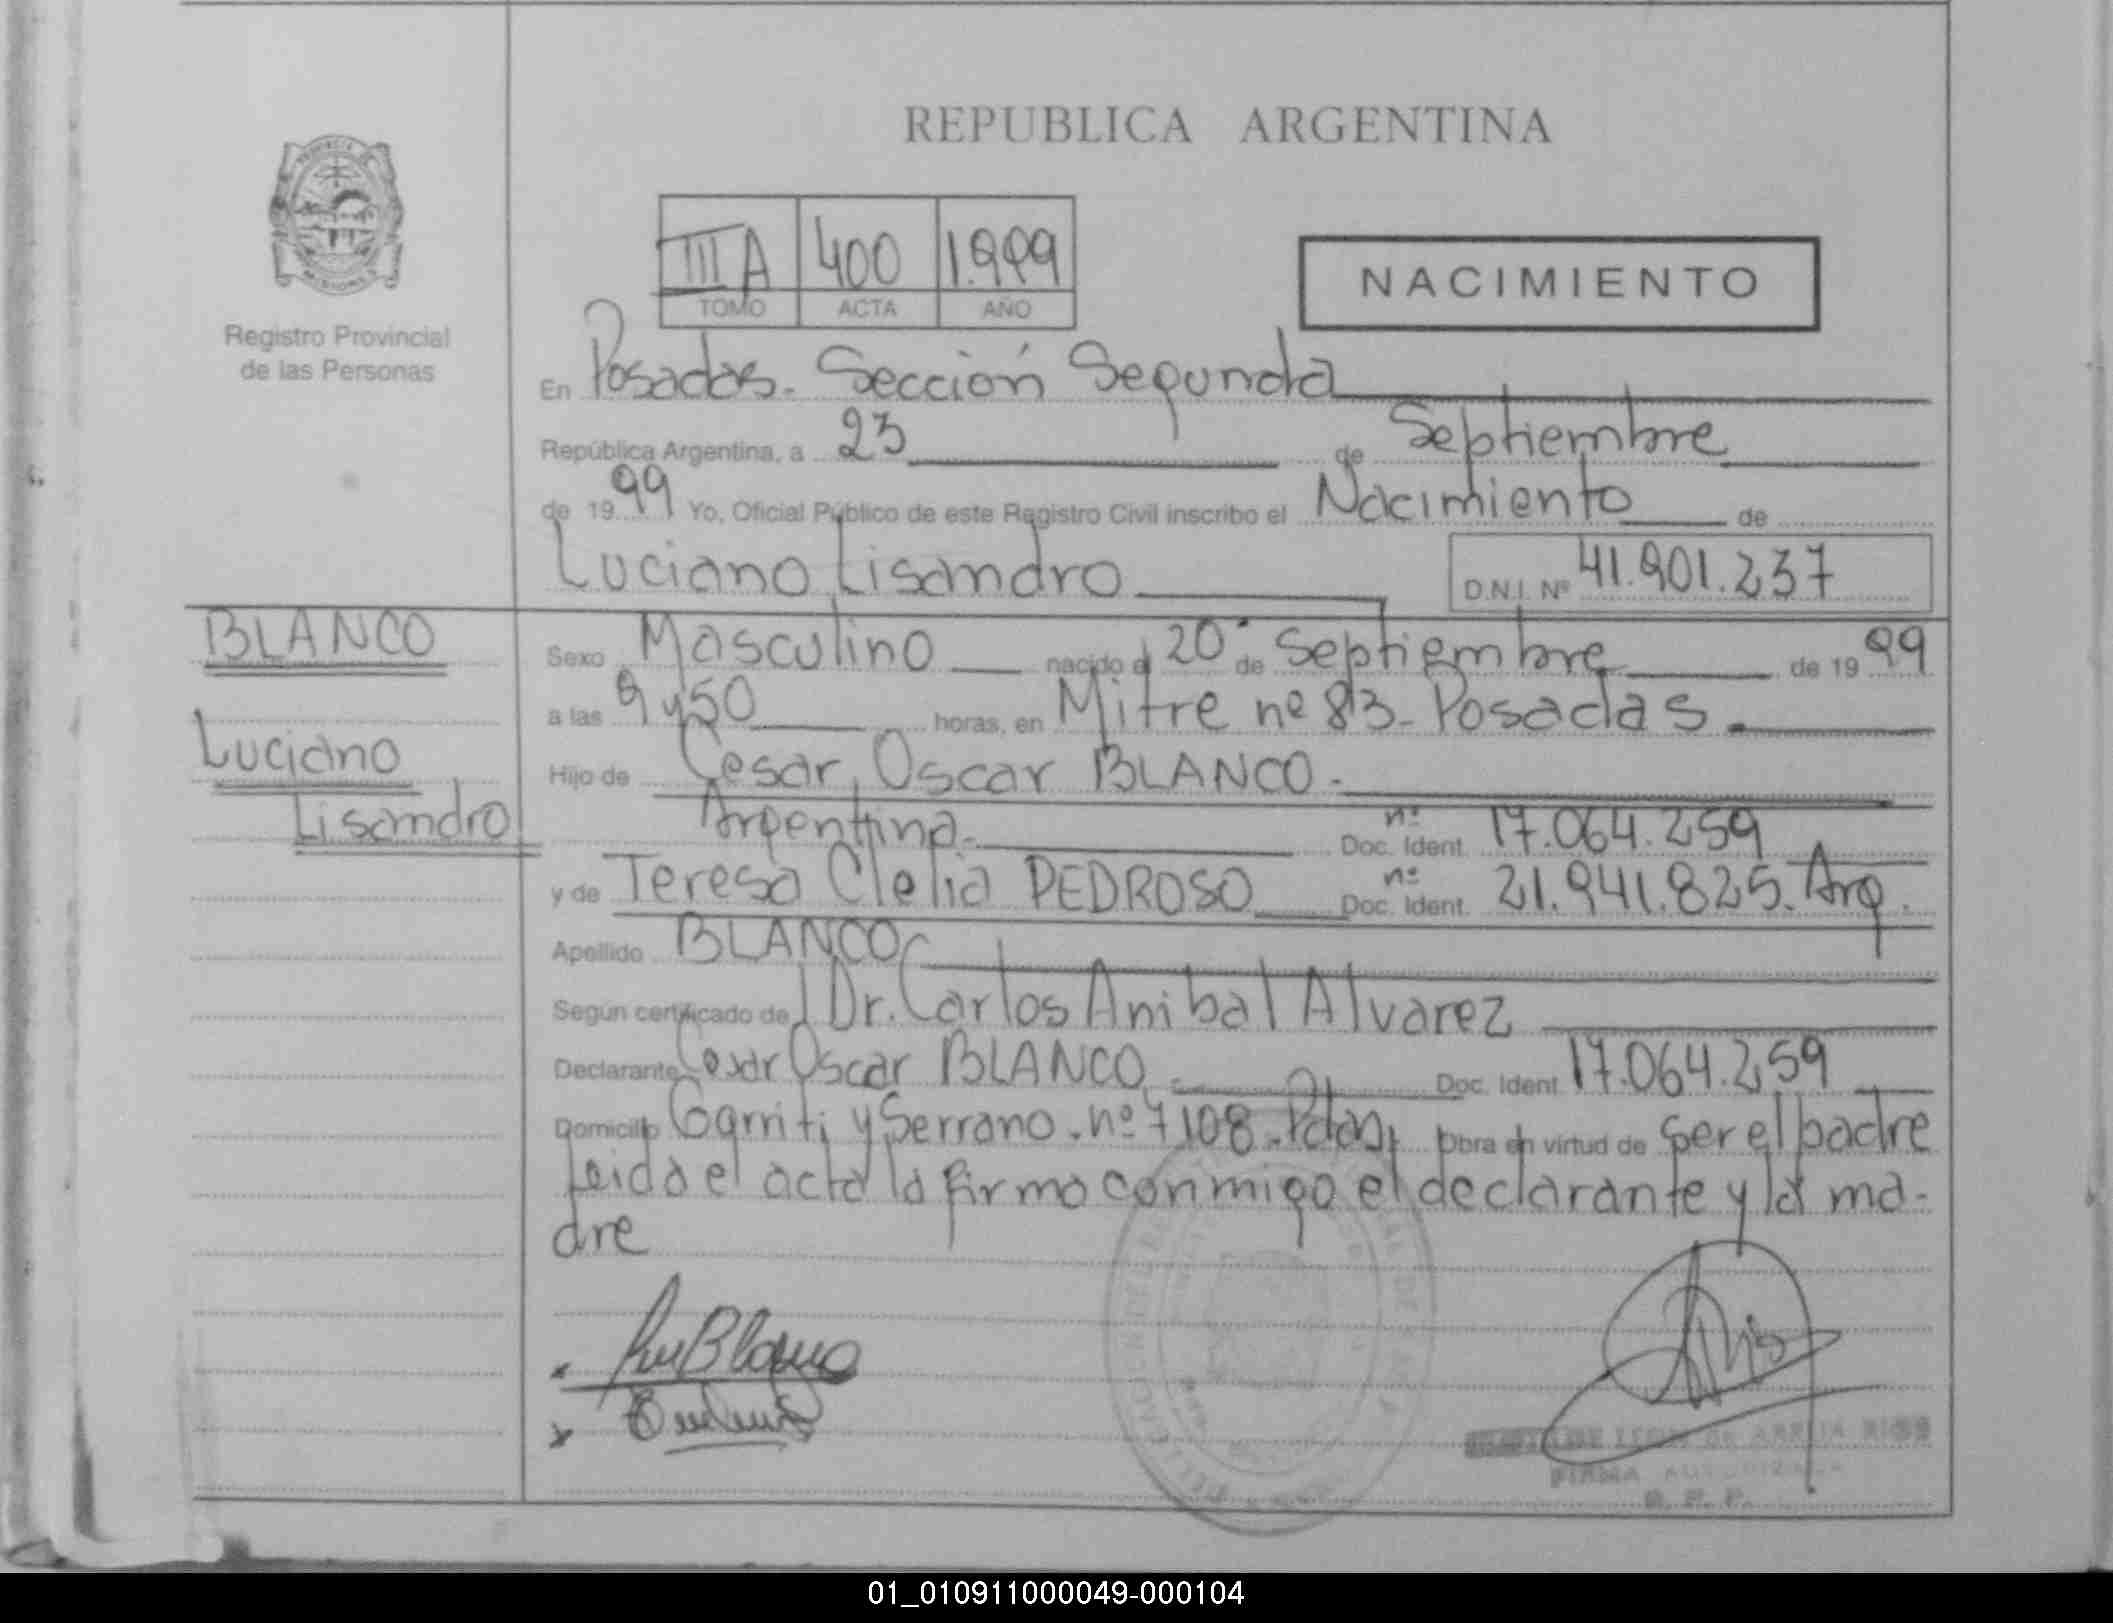 REPUBLICA ARGENTINA
III A 400 1.999
TOMO ACTA AÑO
NACIMIENTO
Registro Provincial
de las Personas
En Posadas. Sección Segunda
República Argentina, a 23 de Septiembre
de 1999 Yo, Oficial Público de este Registro Civil inscribo el Nacimiento de
Luciano Lisandro D.N.I. Nº 41.901.237
BLANCO
Luciano
Lisandro
Sexo Masculino nacido el 20 de Septiembre de 1999
a las 9 y 50 horas, en Mitre nº 83 - Posadas.
Hijo de Cesar Oscar BLANCO.
Argentina. nº Doc. Ident. 17.064.259
y de Teresa Clelia PEDROSO nº Doc. Ident. 21.941.825. Arg.
Apellido BLANCO
Según certificado del Dr. Carlos Anibal Alvarez
Declarante Cesar Oscar BLANCO. Doc. Ident. 17.064.259
Domicilio Garriti y Serrano. nº 7108. Pdas, obra en virtud de Ser el padre
Leida el acta la firma conmigo el declarante y la ma-
dre
Blanco
FIRMA AUTORIZADA
R. P. P.
01_010911000049-000104